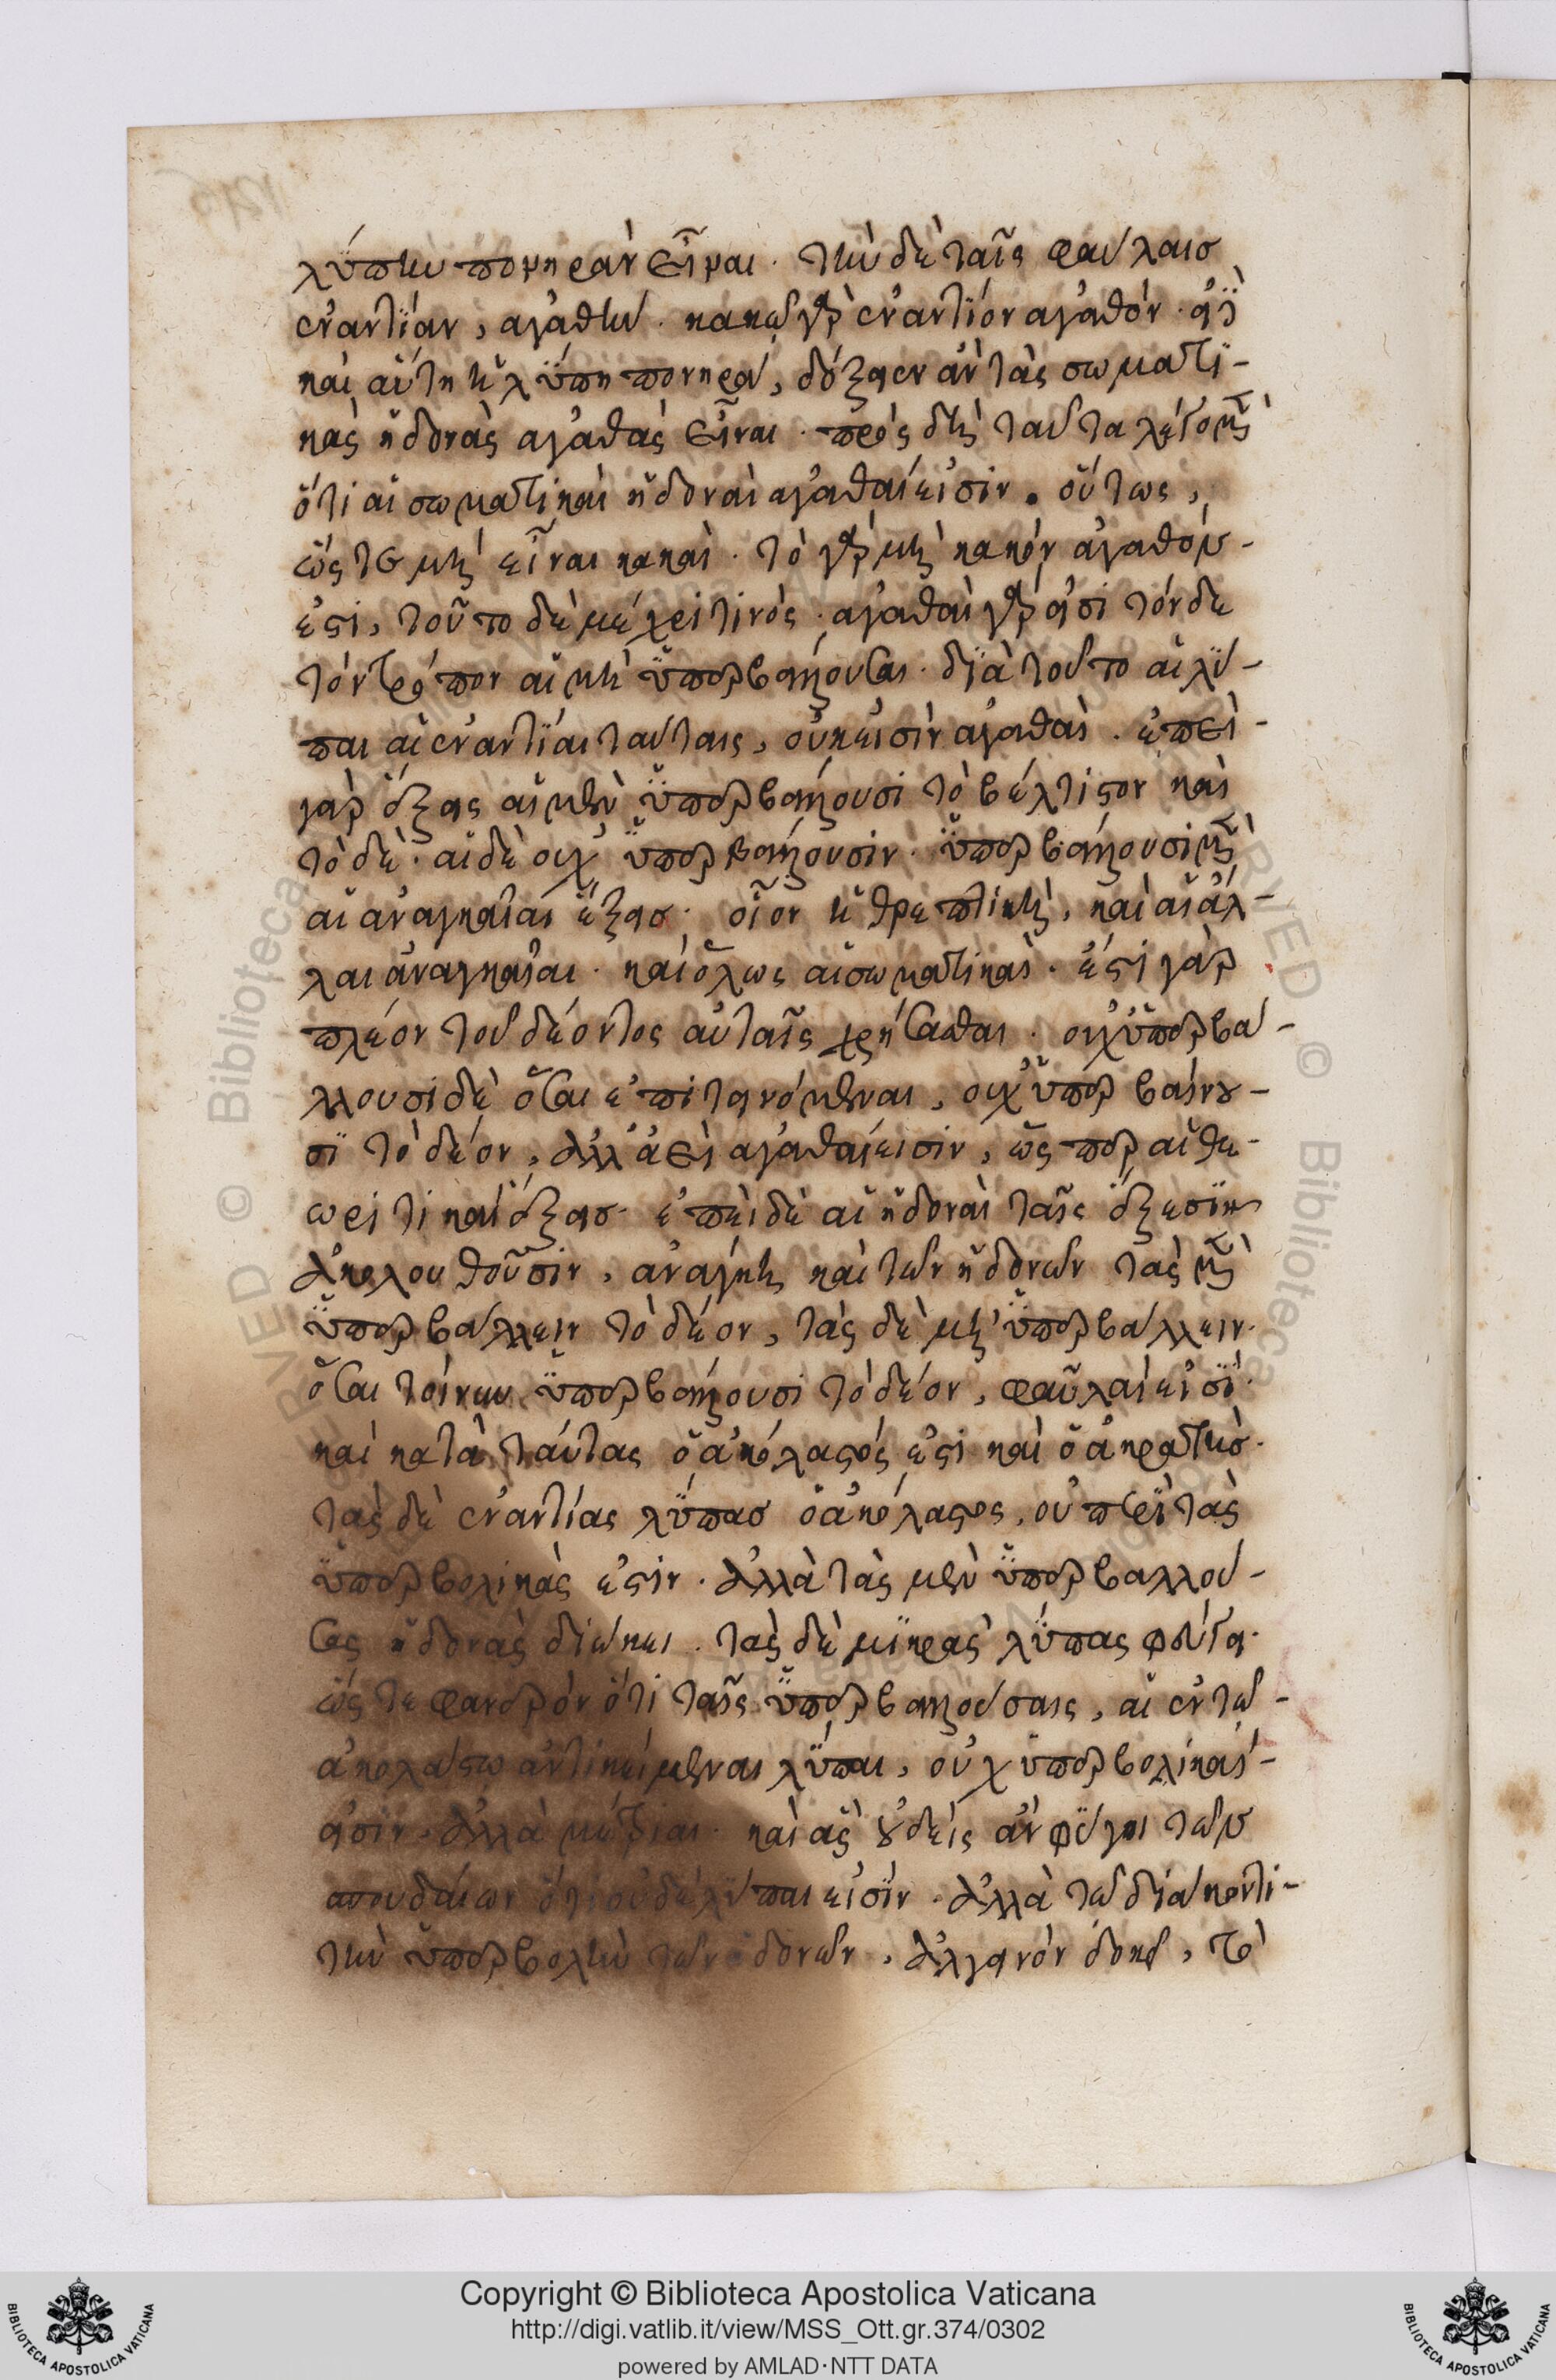 λύπην πονηρὰν εἶναι. τὴν δὲ ταῖς φαύλαισ
ἐναντίαν, ἀγαθήν. κακῶ γὰρ ἐναντίον ἀγαθόν. εἰ
καὶ αὕτη ἡ λύπη πονηρά, δόξειεν ἂν τὰς σωματι-
κὰς ἡδονὰς ἀγαθὰς εἶναι. πρὸς δὴ ταῦτα λέγομεν
ὅτι αἱ σωματικαὶ ἡδοναὶ ἀγαθαί εἰσιν. οὕτως,
ὥςτε μὴ εἶναι κακαὶ. τὸ γὰρ μὴ κακὸν ἀγαθόν
ἐστι, τοῦτο δὲ μέχρι τινὸς. ἀγαθαὶ γὰρ εἰσι τόνδε
τὸν τρόπον αἱ μὴ ὑπερβάλλουσαι. διὰ τοῦτο αἱ λύ-
παι αἱ ἐναντίαι ταύταις, οὐκ εἰσὶν ἀγαθαὶ. ἐπεὶ
γὰρ ἕξεις αἱ μὲν ὑπερβάλλουσι τὸ βέλτιστον καὶ
τὸ δὲ. αἱ δὲ οὐχ ὑπερβάλλουσιν. ὑπερβάλλουσι μὲν
αἱ ἀναγκαῖαι ἕξεισ. οἷον ἡ θρεπτικὴ, καὶ αἱ ἄλ-
λαι ἀναγκαῖαι. καὶ ὅλως αἱ σωματικαὶ. ἔστι γὰρ
πλέον τοῦ δέοντος αὐταῖς χρήσασθαι. οὐχ ὑπερβά-
λλουσι δὲ ὅσαι ἐπιτεινόμεναι, οὐχ ὑπερβαίνου-
σι τὸ δέον, ἀλλ' ἀεὶ ἀγαθαί εἰσιν, ὥς περ αἱ θε-
ωρητικαὶ ἕξεισ. ἐπεὶ δὲ αἱ ἡδοναὶ ταῖς ἕξεσιν
ἀκολουθοῦσιν, ἀνάγκη καὶ τῶν ἡδονῶν τὰς μὲν
ὑπερβάλλειν τὸ δέον, τὰς δὲ μὴ ὑπερβάλλειν.
ὅσαι τοίνυν ὑπερβάλλουσι τὸ δέον, φαῦλαί εἰσι.
καὶ κατὰ ταύτας ὁ ἀκόλαστός ἐστι καὶ ὁ ἀκρατὴσ.
τὰς δὲ ἐναντίας λύπασ ὁ ἀκόλαστος, οὐ περὶ τὰς
ὑπερβολικὰς ἐστιν. ἀλλὰ τὰς μὲν ὑπερβαλλού-
σας ἡδονὰς διώκει. τὰς δὲ μικρὰς λύπας φεύγει.
ὥς τε φανερὸν ὅτι ταῖς ὑπερβαλλούσαις, αἱ ἐν τῶ
ἀκολάστω ἀντικείμεναι λύπαι, οὐχ ὑπερβολικαί
εἰσιν. ἀλλὰ μέτριαι. καὶ ἃς οὐδεὶς ἂν φύγοι τῶν
σπουδαίων ὅτι οὐδὲ λύπαι εἰσίν. ἀλλὰ τῶ διώκοντι
τὴν ὑπερβολὴν τῶν ἡδονῶν, ἀλγεινὸν δοκεῖ, τὸ
Copyright © Biblioteca Apostolica Vaticana
http://digi.vatlib.it/view/MSS_Ott.gr.374/0302
powered by AMLAD·NTT DATA